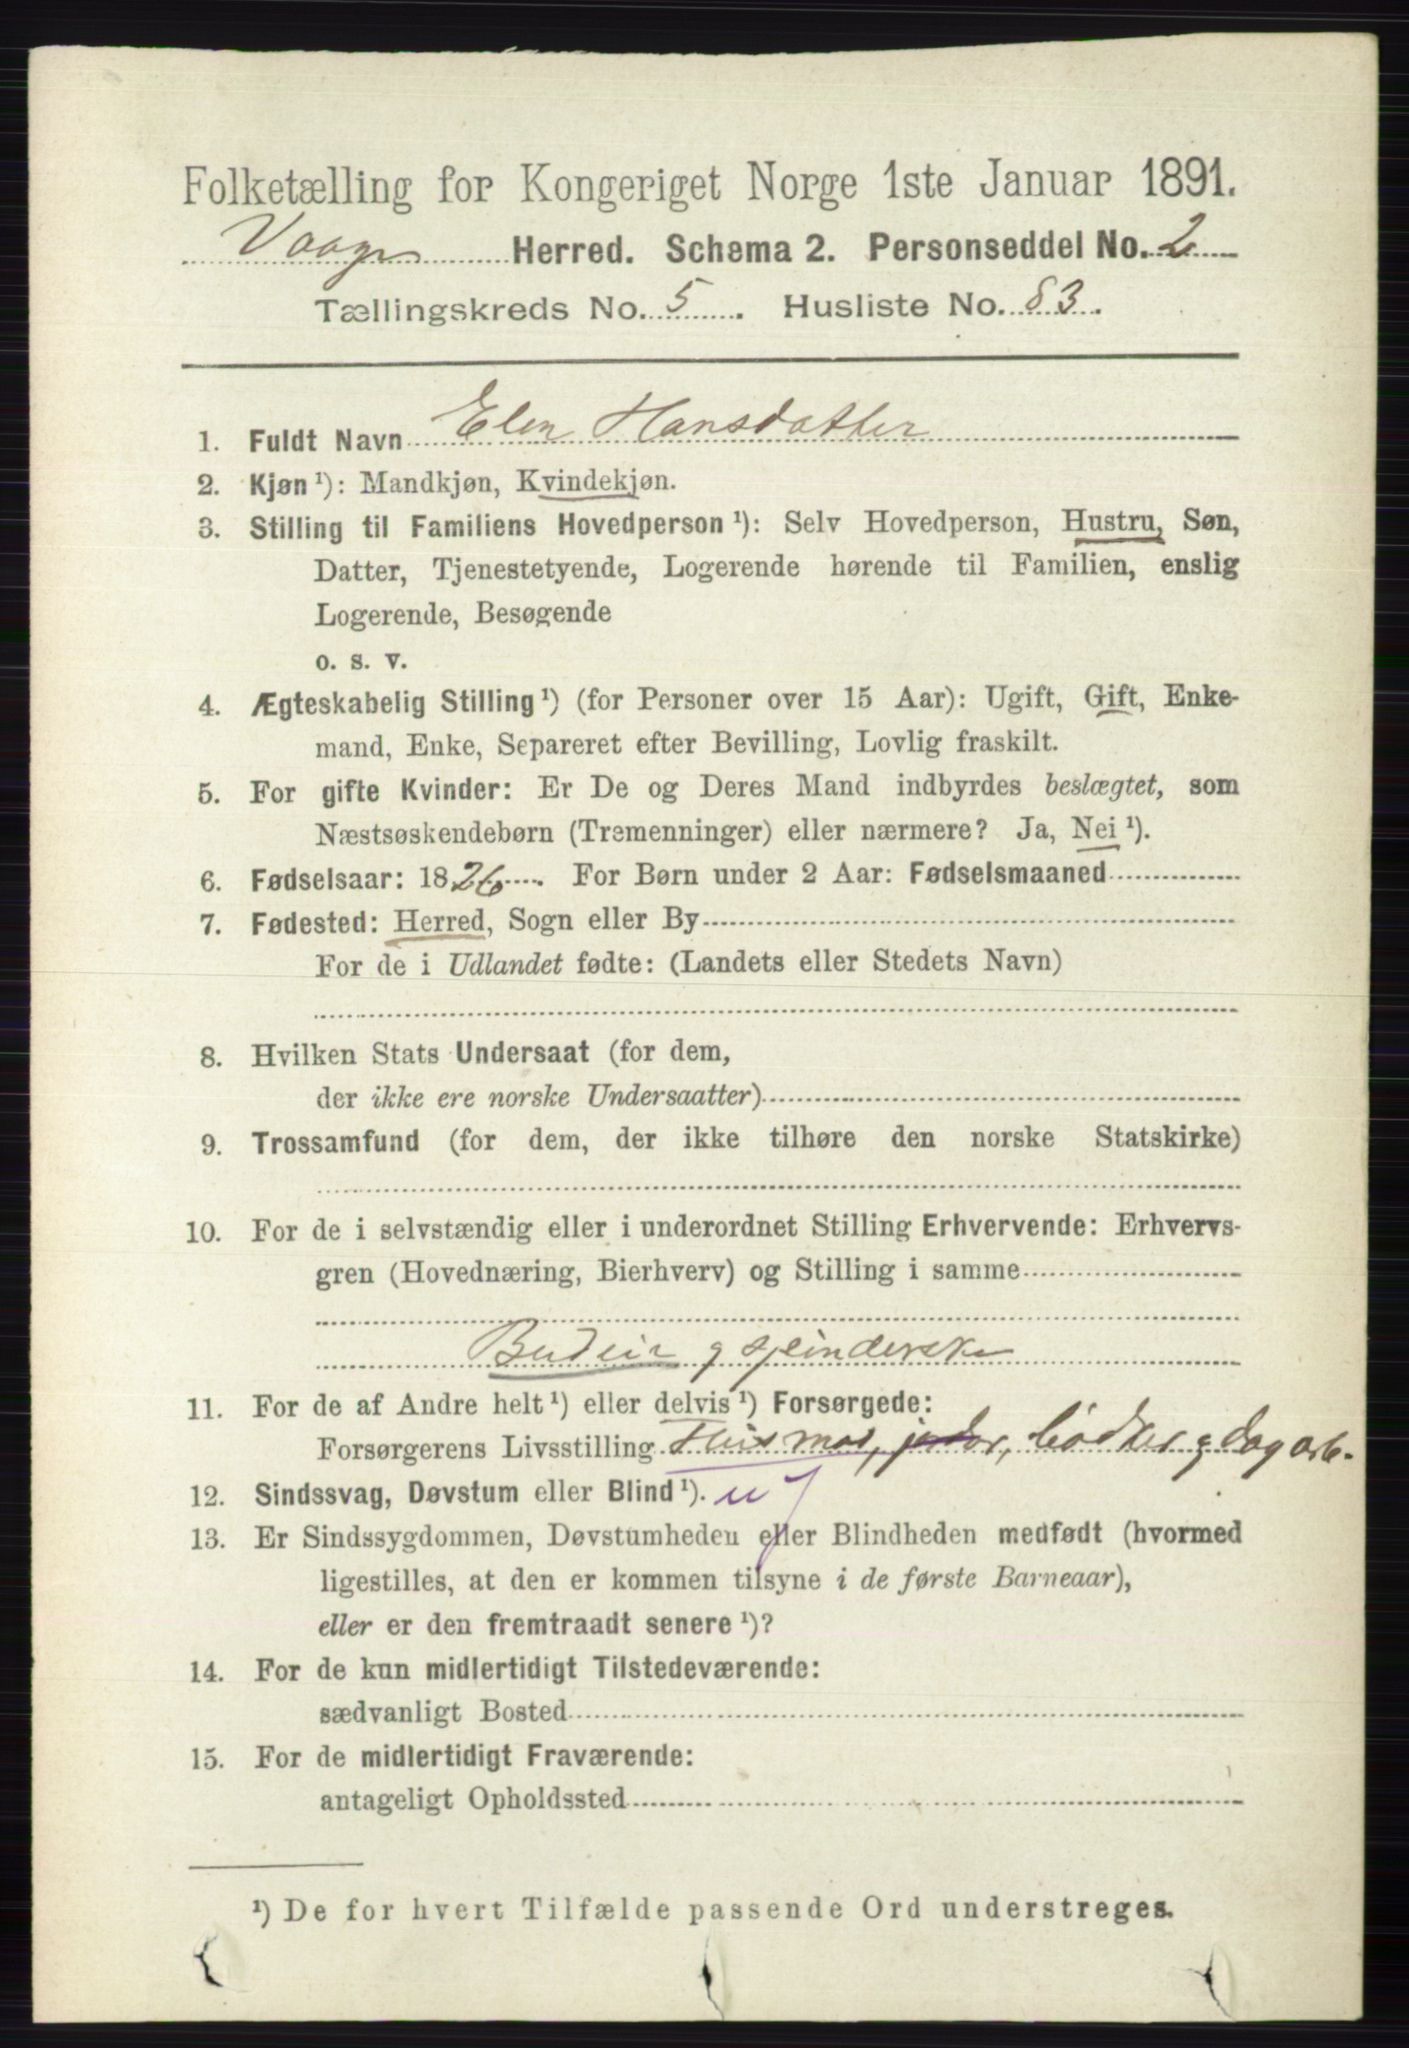 Folketælling for Kongeriget Norge 1ste Januar 1891.
Vaage Herred. Schema 2. Personseddel No. 2
Tællingskreds No. 5. Husliste No. 83.
1. Fuldt Navn Elen Hansdatter
2. Kjøn ¹): Mandkjøn, Kvindekjøn.
3. Stilling til Familiens Hovedperson ¹): Selv Hovedperson, Hustru, Søn,
Datter, Tjenestetyende, Logerende hørende til Familien, enslig
Logerende, Besøgende
o. s. v.
4. Ægteskabelig Stilling ¹) (for Personer over 15 Aar): Ugift, Gift, Enke-
mand, Enke, Separeret efter Bevilling, Lovlig fraskilt.
5. For gifte Kvinder: Er De og Deres Mand indbyrdes beslægtet, som
Næstsøskendebørn (Tremenninger) eller nærmere? Ja, Nei ¹).
6. Fødselsaar: 1826. For Børn under 2 Aar: Fødselsmaaned
7. Fødested: Herred, Sogn eller By
For de i Udlandet fødte: (Landets eller Stedets Navn)
8. Hvilken Stats Undersaat (for dem,
der ikke ere norske Undersaatter)
9. Trossamfund (for dem, der ikke tilhøre den norske Statskirke)
10. For de i selvstændig eller i underordnet Stilling Erhvervende: Erhvervs-
gren (Hovednæring, Bierhverv) og Stilling i samme
Budeie g spinderske
11. For de af Andre helt ¹) eller delvis ¹) Forsørgede:
Forsørgerens Livsstilling Husmad, jorder, bødker g dag arb.
12. Sindssvag, Døvstum eller Blind ¹).
13. Er Sindssygdommen, Døvstumheden eller Blindheden medfødt (hvormed
ligestilles, at den er kommen tilsyne i de første Barneaar),
eller er den fremtraadt senere ¹)?
14. For de kun midlertidigt Tilstedeværende:
sædvanligt Bosted
15. For de midlertidigt Fraværende:
antageligt Opholdssted
¹) De for hvert Tilfælde passende Ord understreges.